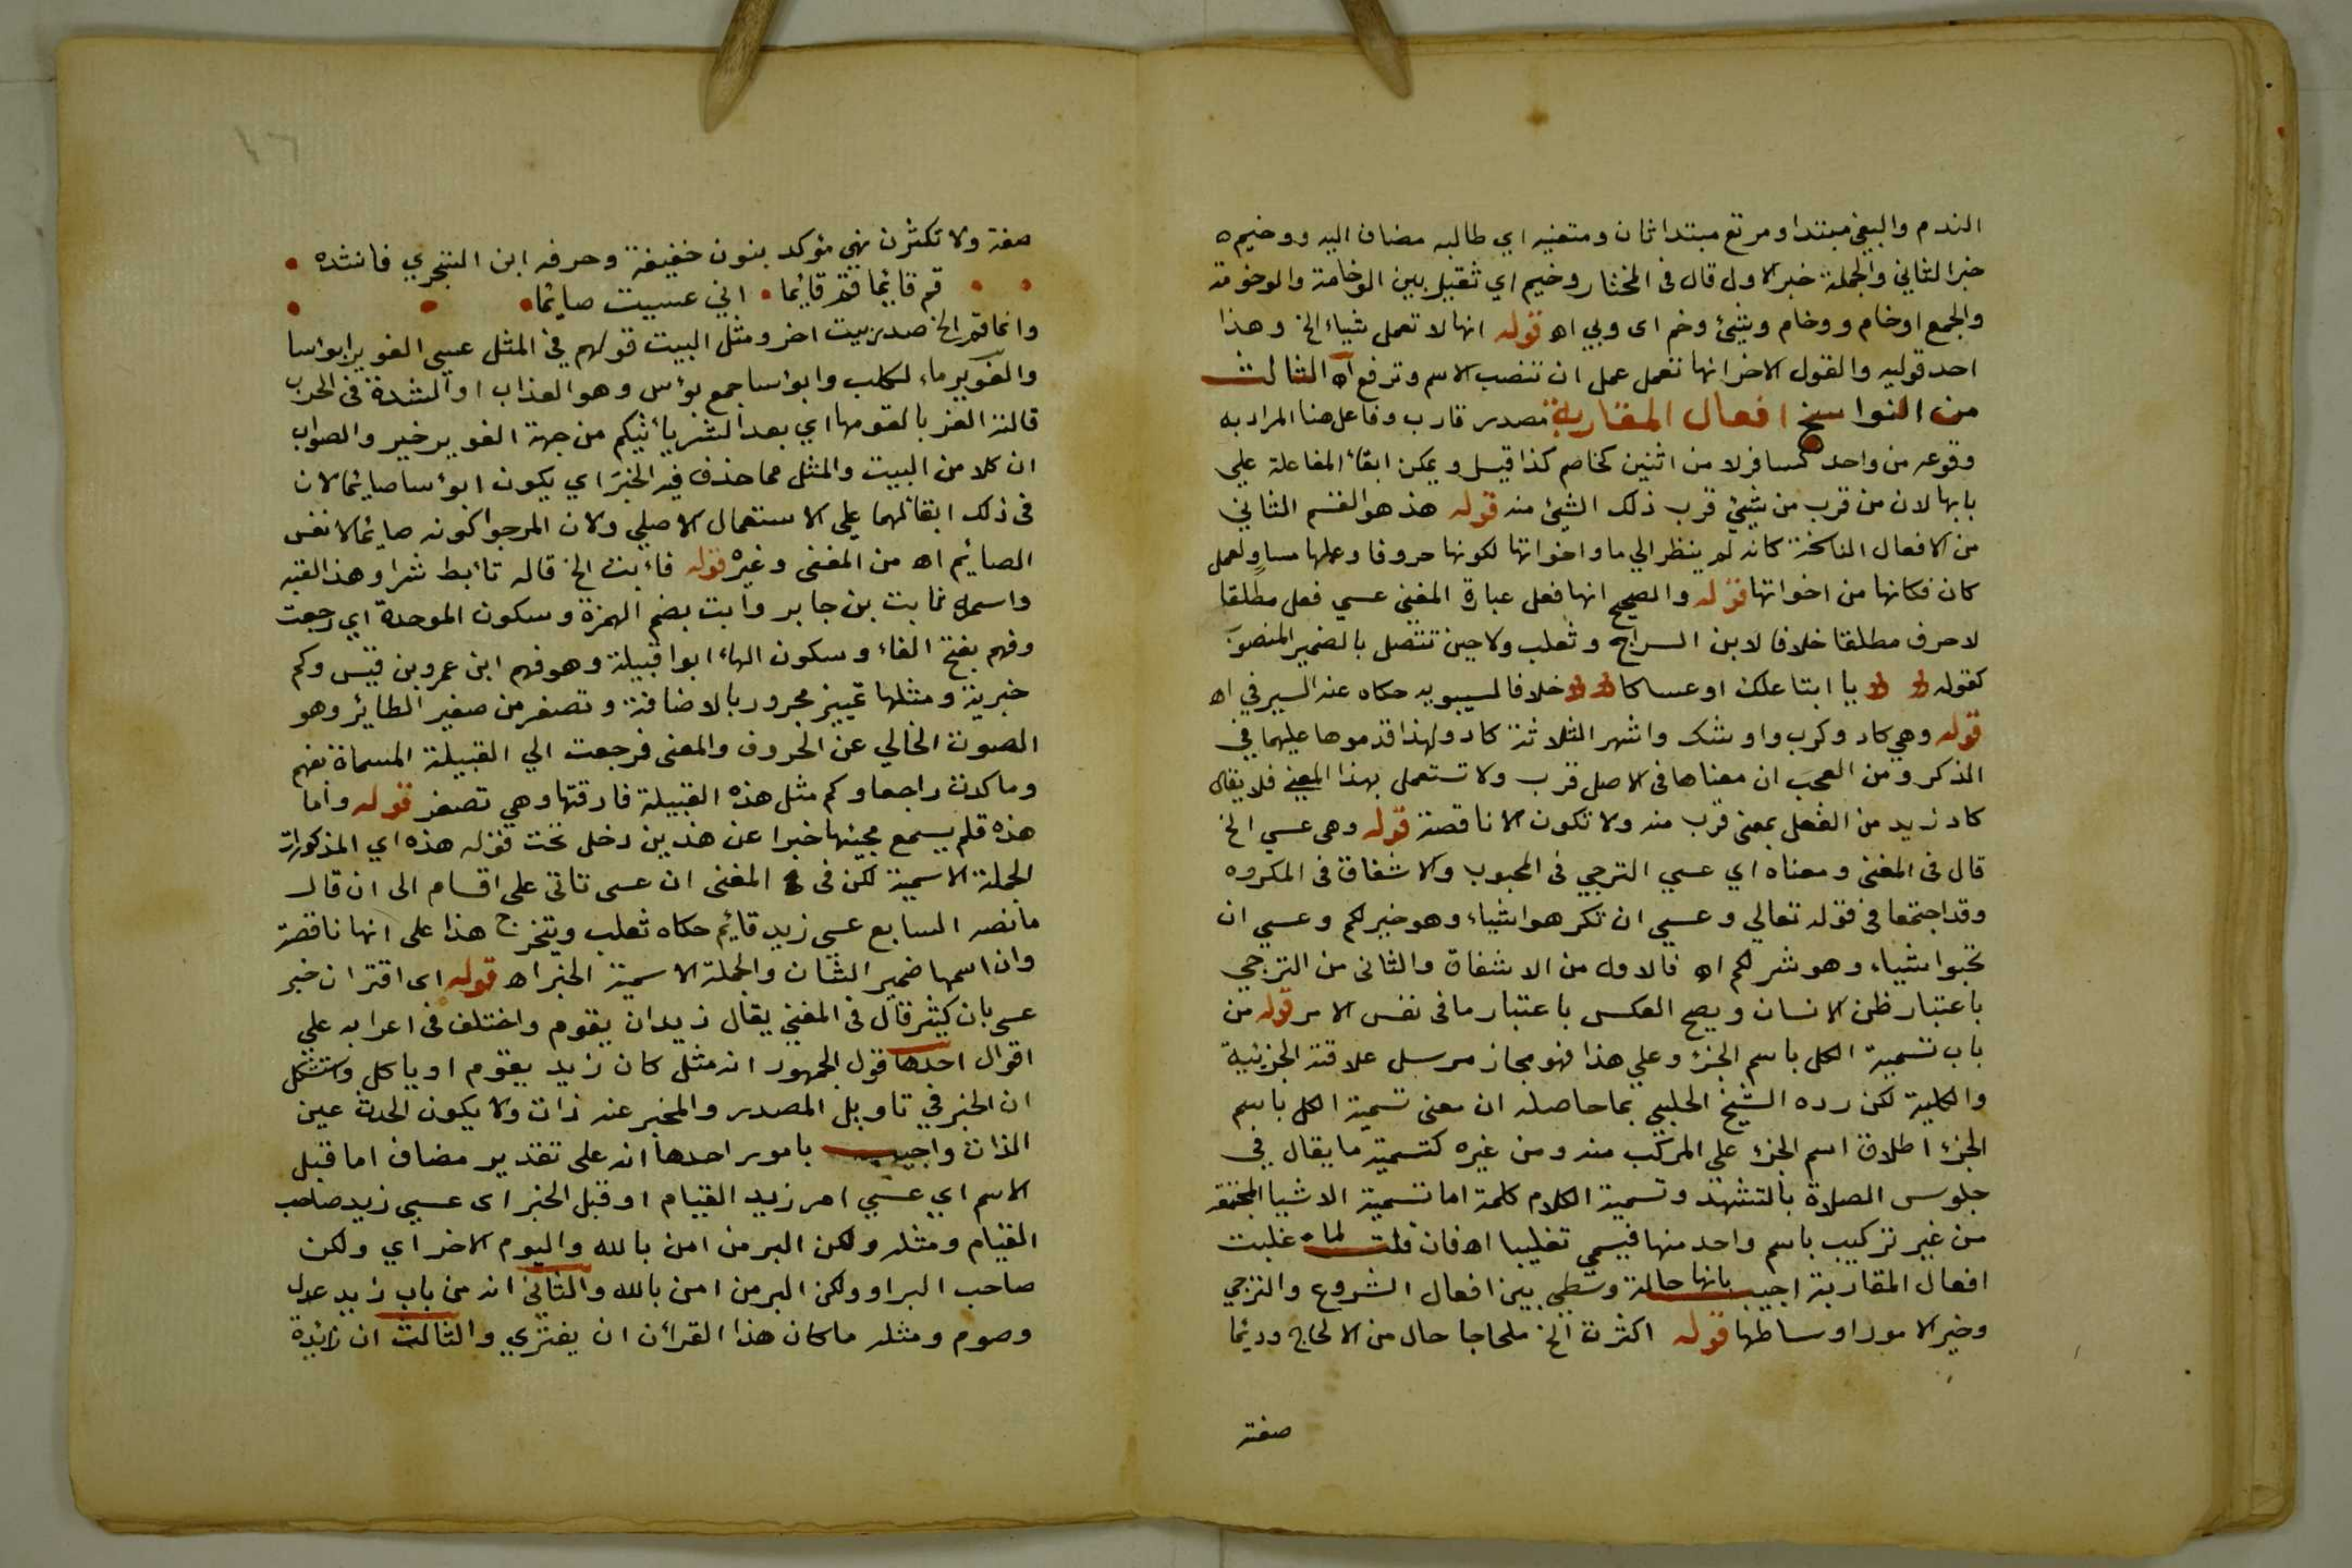 الندم والبغي مبتدا ومرتع مبتدا ثان ومتغيه اي طالبه مضاف اليه ووخيم ه
خبر الثاني والجملة خبر الاول قال في المختار وخيم اي ثقيل بين الوخامة والوخومة
والجمع اوخام ووخام وشئ وخم اى وبي اه قوله انها لا تعمل شياء الخ وهذا
احد قوليه والقول الاخر انها تعمل عمل ان تنصب الاسم وترفع اه الثالث
من النواسخ افعال المقاربة مصدر قارب وفاعل هنا المراد به
وقوعه من واحد كسافر لا من اثنين كخاصم كذا قيل ويمكن ابقاء المفاعلة علي
بابها لان من قرب من شئ قرب ذلك الشئ منه قوله هذ هو القسم الثاني
من الافعال الناسخة كانه لم ينظر الي ما واخواتها لكونها حروفا وعملها مساو لعمل
كان فكانها من اخواتها قوله والصحيح انها فعل عبارة المغني عسي فعل مطلقا
لا حرف مطلقا خلافا لابن السراج وثعلب ولا حين تتصل بالضمير المنصوب
كقوله يا ابتا علك او عساكا خلافا لسيبويه حكاه عنه السيرفي اه
قوله وهي كاد وكرب واوشك واشهر الثلاثة كاد ولهذا قدموها عليهما في
الذكر ومن العجب ان معناها في الاصل قرب ولا تستعمل بهذا المعنى فلا يقال
كاد زيد من الفعل بمعنى قرب منه ولا تكون الا ناقصة قوله وهى عسي الخ
قال في المغني ومعناه اي عسي الترجي في المحبوب والاشفاق في المكروه
وقد اجتمعا في قوله تعالي وعسي ان تكرهوا شياء وهو خير لكم وعسي ان
تحبوا شياء وهو شر لكم اه فالاول من الاشفاق والثانى من الترجي
باعتبار ظن الانسان ويصح العكس باعتبار ما في نفس الامر قوله من
باب تسمية الكل باسم الجزء وعلي هذا فهو مجاز مرسل علاقته الجزئية
والكلية لكن رده الشيخ الحلبي بما حاصله ان معنى تسمية الكل باسم
الجزء اطلاق اسم الجزء علي المركب منه ومن غيره كتسمية ما يقال في
جلوس الصلاة بالتشهد وتسمية الكلام كلمة اما تسمية الاشيا المجتمعة
من غير تركيب باسم واحد منها فيسمي تغليبا اه فان قلت لما غلبت
افعال المقاربة اجيب بانها حالة وسطي بين افعال الشروع والترجي
وخير الامور اوساطها قوله اكثرت الخ ملحا حال من الالحاح ودئما
صفة
صفة ولا تكثرن نهي مؤكد بنون خفيفة وحرفه ابن الشجري فانشده
قم قائما قم قائما اني عسيت صائما
وانما قم الخ صدر بيت اخر ومثل البيت قولهم في المثل عسي الغوير ابواسا
والغوير ماء لكلب وابواسا جمع بؤس وهو العذاب او الشدة في الحرب
قالته الغز بالقومها اي بعد الشر ياتيكم من جهة الغوير خير والصواب
ان كلا من البيت والمثل مما حذف فيه الخبر اي يكون ابؤسا صائما لان
في ذلك ابقائهما على الاستعمال الاصلي ولان المرجو كونه صائما لا نفس
الصائم اه من المغني وغيره قوله فاءبت الخ قاله تأبط شرا وهذا لقبه
واسمه ثابت بن جابر وابت بضم الهمزة وسكون الموحدة اي رجعت
وفهم بفتح الفاء وسكون الهاء ابوا قبيلة وهو فهم ابن عمرو بن قيس وكم
خبرية ومثلها تمييز مجرور بالاضافة وتصفر من صفير الطائر وهو
الصوت الخالي عن الحروف والمعنى فرجعت الي القبيلة المسماة بفهم
وما كدت راجعا وكم مثل هذه القبيلة فارقتها وهي تصفر قوله واما
هذه فلم يسمع مجيئها خبرا عن هذين دخل تحت قوله هذه اي المذكورات
الجملة الاسمية لكن في المغنى ان عسى تاتى على اقسام الى ان قال
مانصه السابع عسي زيد قائم حكاه ثعلب ويتخرج هذا على انها ناقصة
وان اسمها ضمير الشان والجملة الاسمية الخبر اه قوله اى اقتران خبر
عسي بان كثير قال في المغني يقال زيد ان يقوم واختلف في اعرابه علي
اقوال احدها قول الجمهور انه مثل كان زيد يقوم او ياكل واستشكل
ان الخبر في تاويل المصدر والمخبر عنه ذات ولا يكون الحدث عين
الذات واجيب بامور احدها انه على تقدير مضاف اما قبل
الاسم اي عسي امر زيد القيام او قبل الخبر اى عسي زيد صاحب
القيام ومثله ولكن البر من امن بالله واليوم الاخر اي ولكن
صاحب البر او ولكن البر من امن بالله والثاني انه من باب زيد عدل
وصوم ومثله ما كان هذا القرأن ان يفترى والثالث ان زائدة